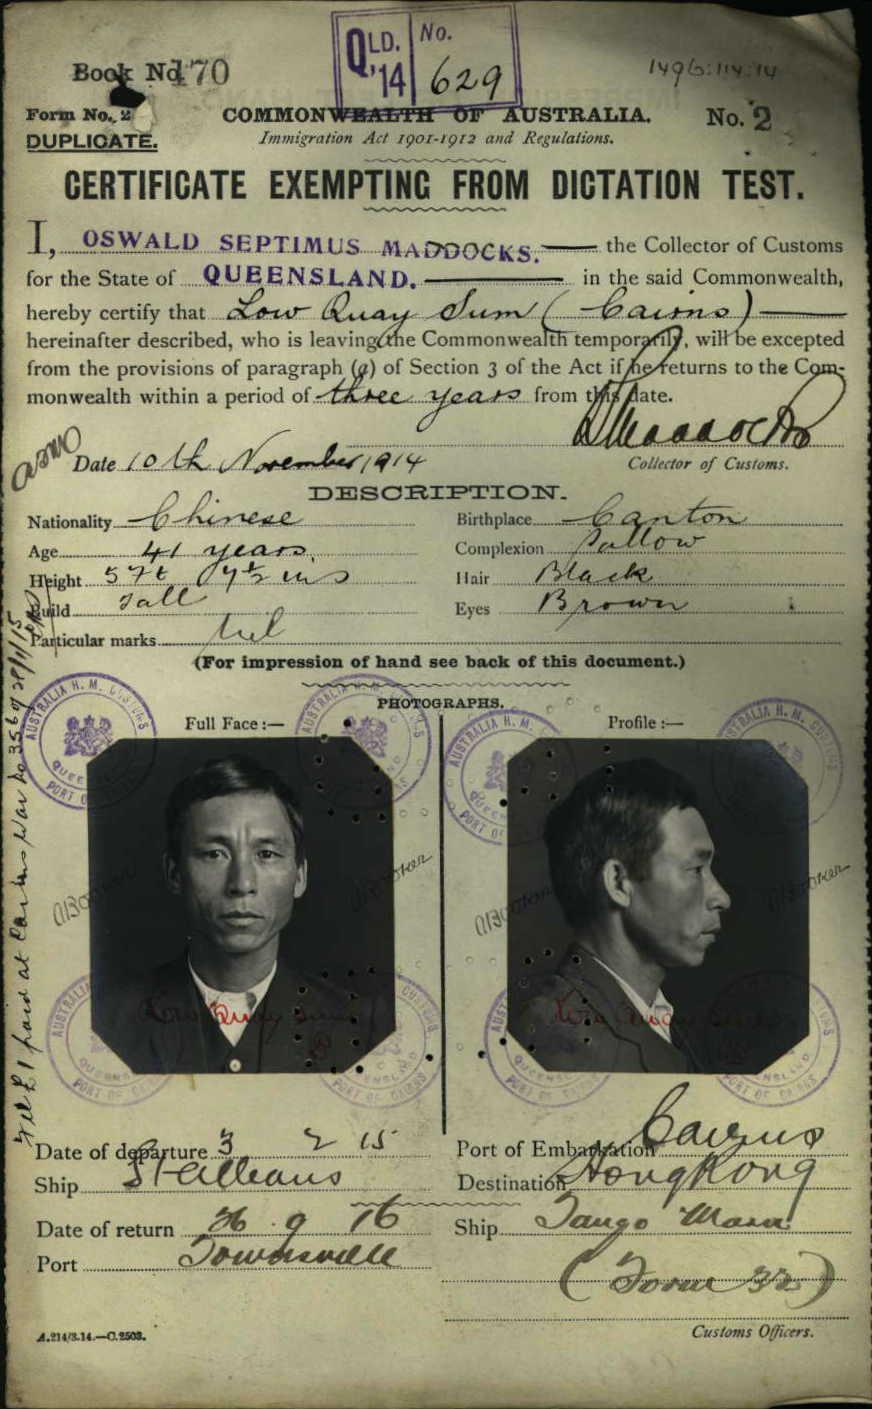 QLD. No.
'14 629
Book No. 170
1496:114:14
Form No. 2
COMMONWEALTH OF AUSTRALIA.
No. 2
DUPLICATE.
Immigration Act 1901-1912 and Regulations.
CERTIFICATE EXEMPTING FROM DICTATION TEST.
I, OSWALD SEPTIMUS MADDOCKS. the Collector of Customs
for the State of QUEENSLAND. in the said Commonwealth,
hereby certify that Low Quay Sum (Cairns)
hereinafter described, who is leaving the Commonwealth temporarily, will be excepted
from the provisions of paragraph (a) of Section 3 of the Act if he returns to the Com-
monwealth within a period of three years from this date.
Date 10th November 1914
Collector of Customs.
DESCRIPTION.
Nationality Chinese Birthplace Canton
Age 41 years Complexion Sallow
Height 5 ft 7½ ins Hair Black
Build Tall Eyes Brown
Particular marks Nil
(For impression of hand see back of this document.)
PHOTOGRAPHS.
Full Face :— Profile :—
AUSTRALIA H. M. CUSTOMS
QUEENSLAND
PORT OF CAIRNS
Low Quay Sum
Low Quay Sum
Date of departure 3 2 15 Port of Embarkation Cairns
Ship St Albans Destination Hong Kong
Date of return 26 9 16 Ship Tango Maru
Port Townsville
(Form 32)
A.214/3.14.—C.2503.
Customs Officers.